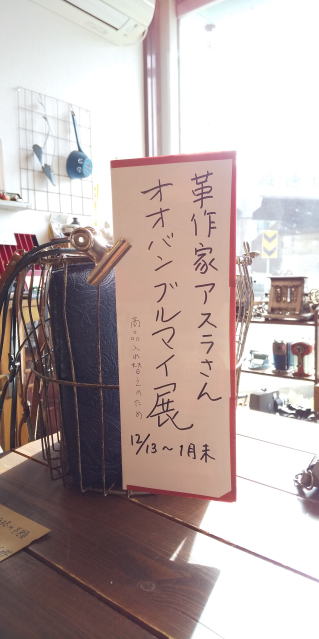 革作家アスラさん
オオバンブルマイ展
商品入れ替えのため
12/13～1月末